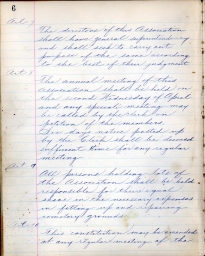 6
Art. 7
The directors of this Association
shall have general superintendency
and shall seek to carry out
purpose according
to the best of their judgment
Art. 8
The annual meeting of this
Association, shall be held on
the second Wednesday of April
and any special meeting may
be called by the clerk on
of the members.
days notice posted up
by the Clerk shall be deemed
sufficient time for any regular
meeting.
Art. 9
All persons holding lots of
the Association shall be held
responsible for their equal
share in the necessary expenses
in fitting up and repairing
cemetery grounds.
This constitution may be amended
at any regular meeting of the